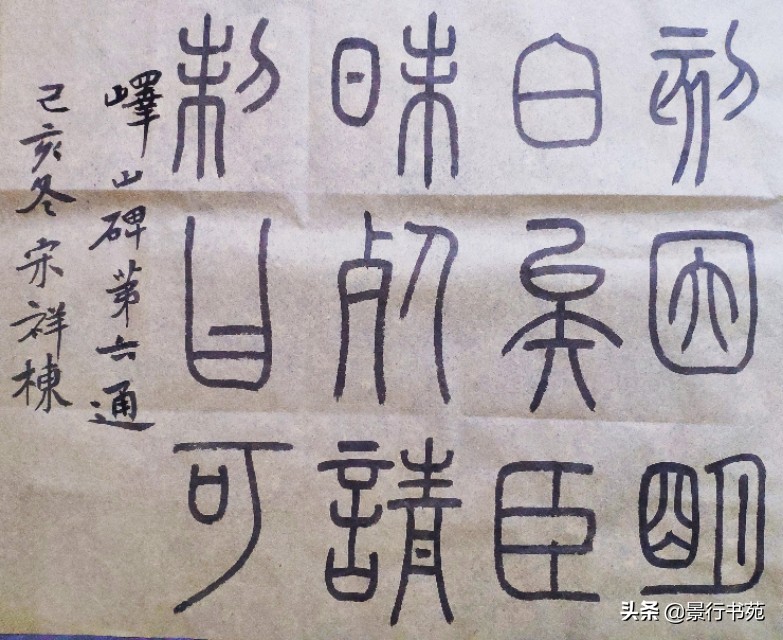 刻因明
白矣臣
昧死請
制曰可
嶧山碑第六通
己亥冬宋祥棟
头条 @景行书苑